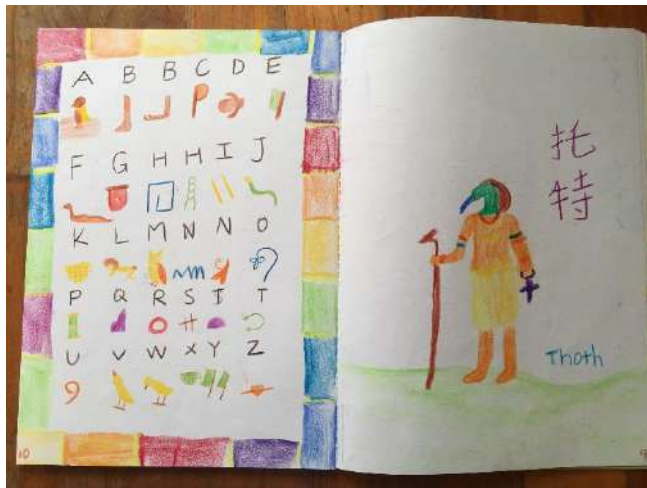 A B B C D E
F G H H I J
K L M N N O
P Q R S T T
U V W X Y Z
10
托
特
Thoth
9